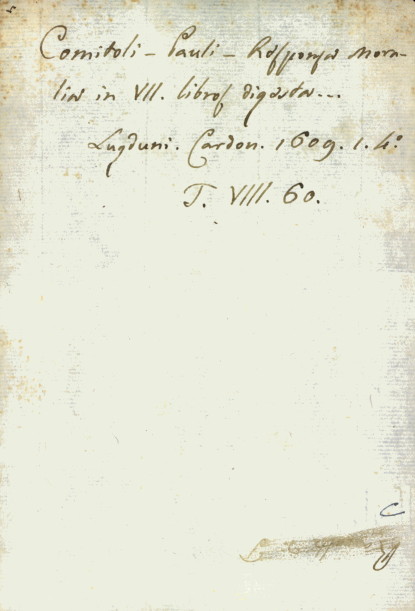 Comitoli - Pauli - Responsa Mora-
lia in VII. libros digesta...
Lugduni. Cardon. 1609. 1. 4.°
T. VIII. 60.
C